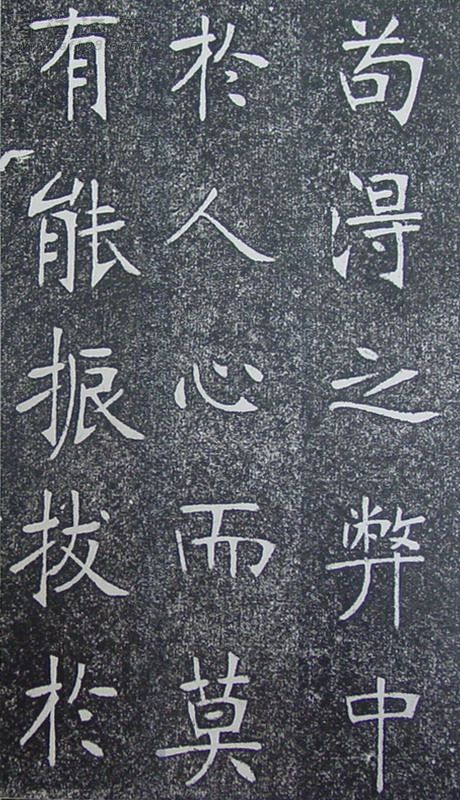 苟淂之弊中
於人心而莫
有能振拔於